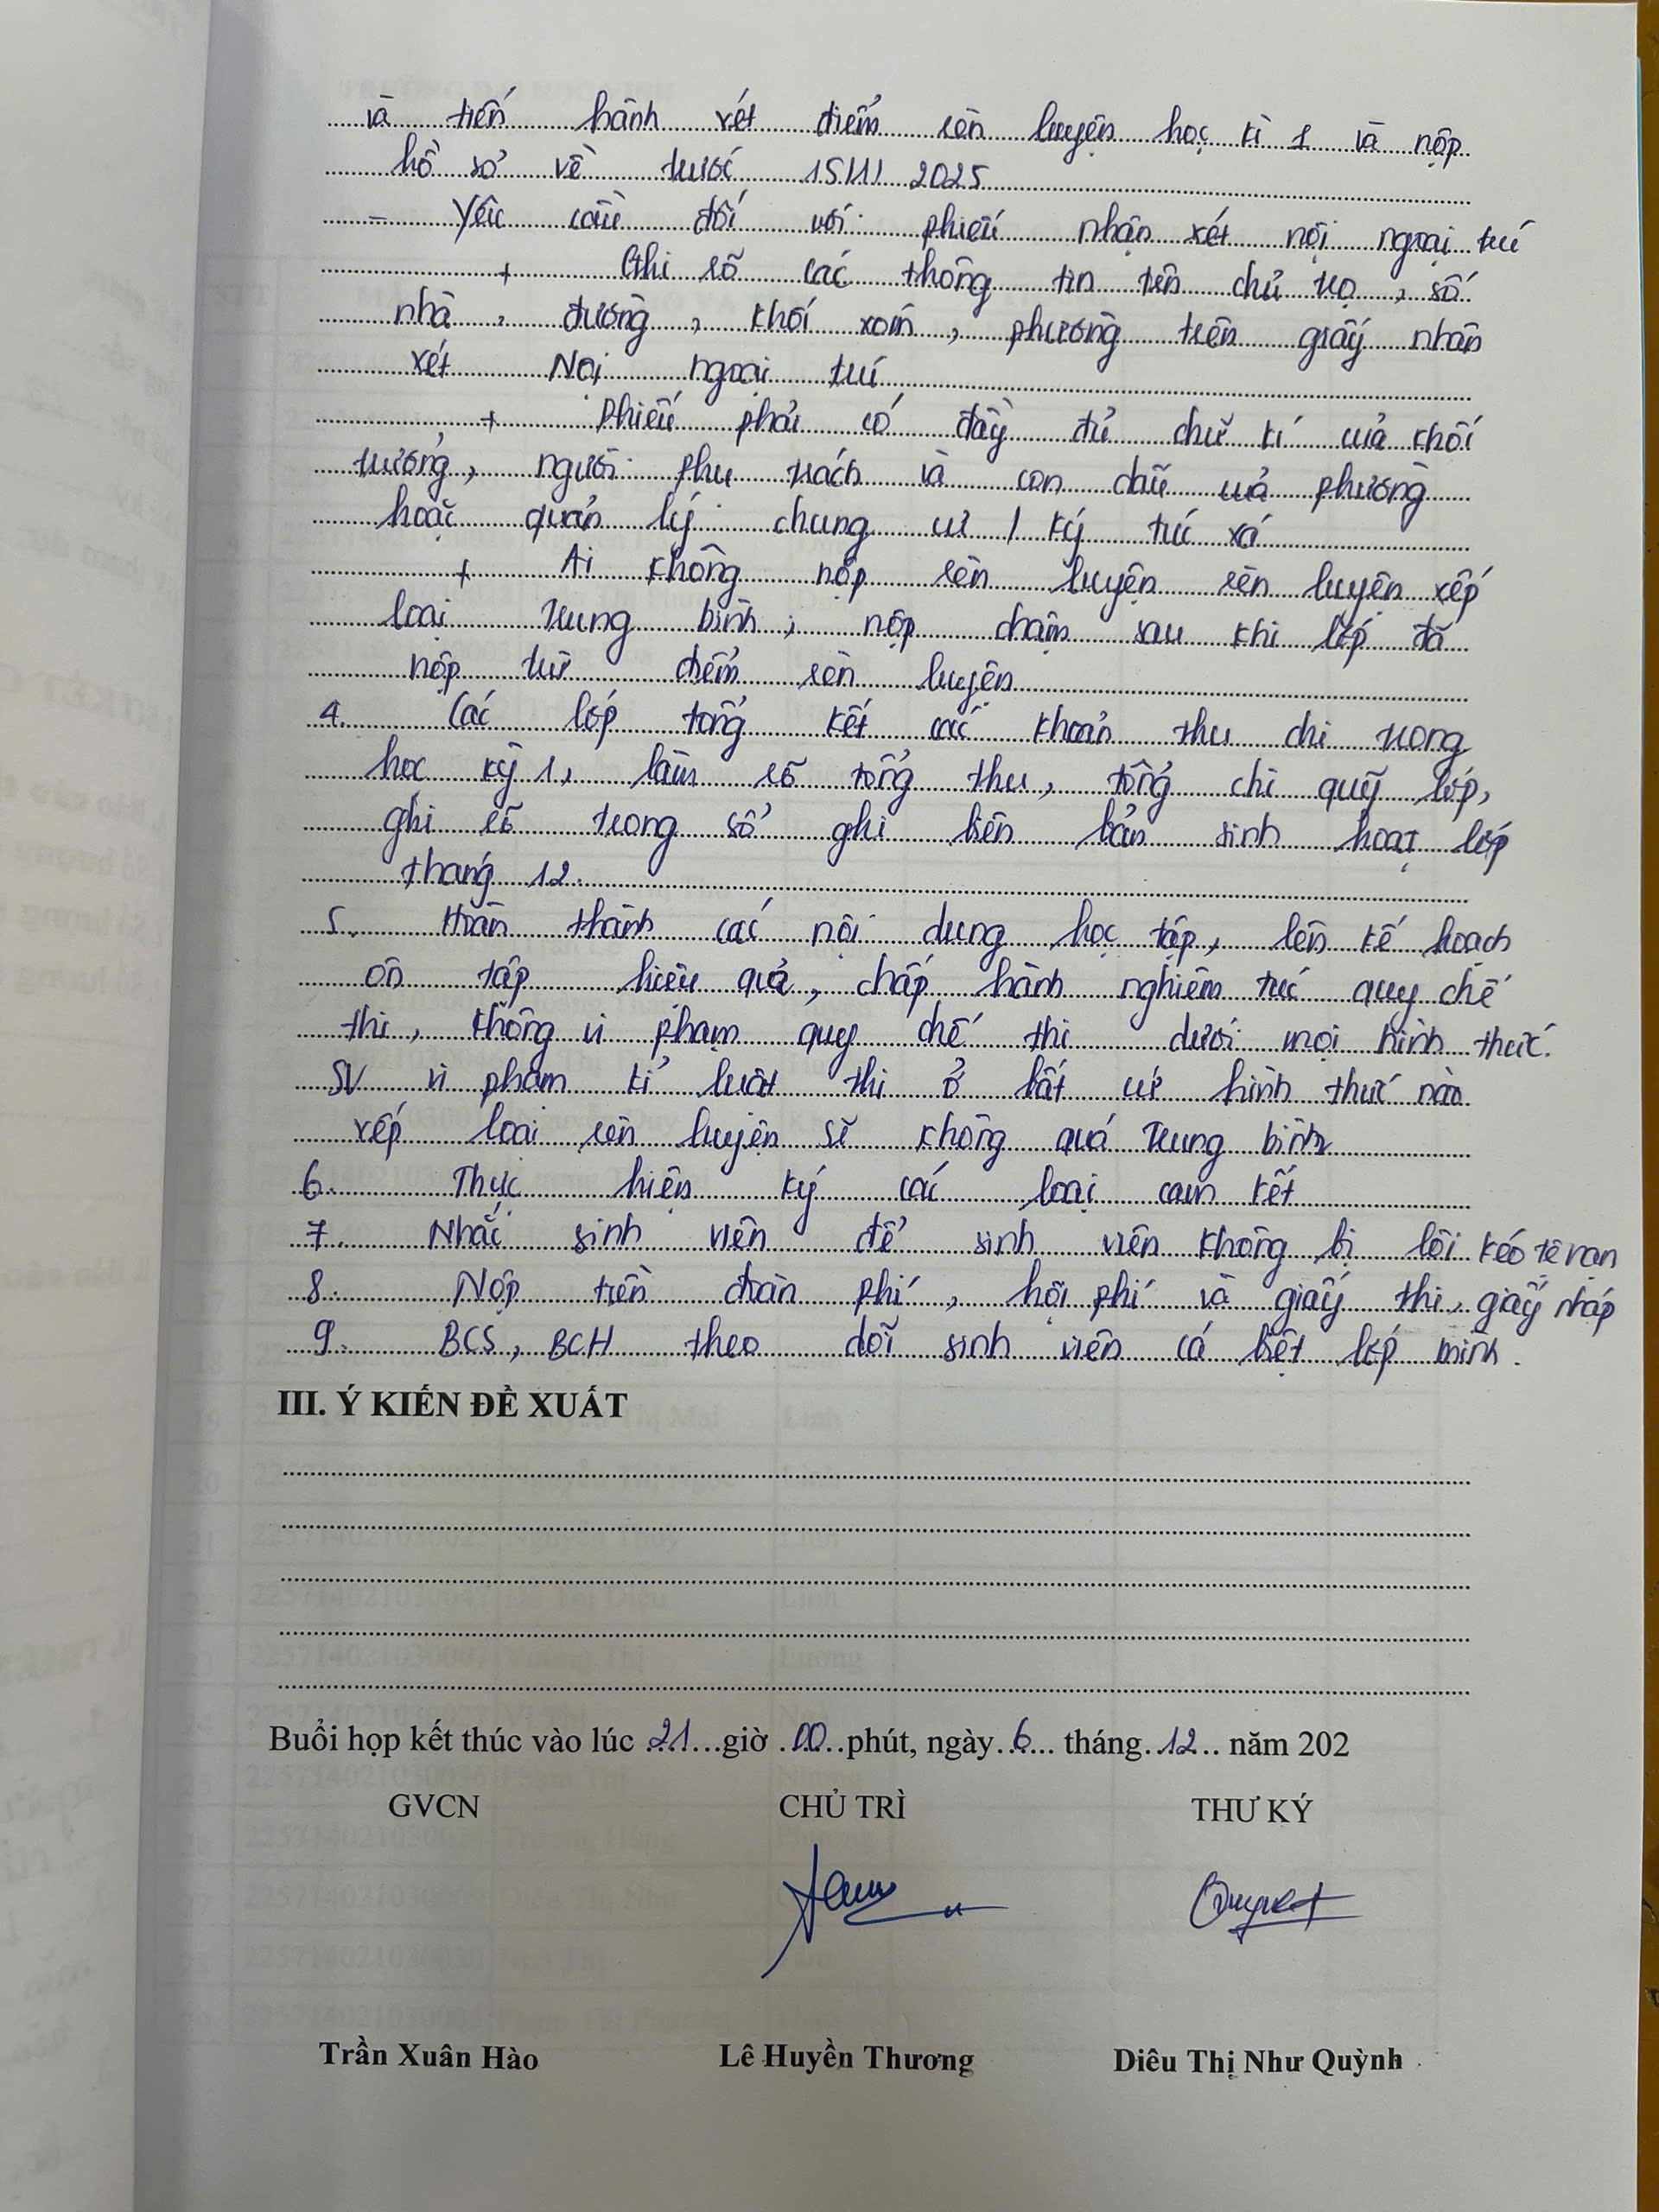 và tiến hành xét điểm rèn luyện học kì 1 và nộp
hồ sơ về trước 15/1/ 2025
- Yêu cầu đối với phiếu nhận xét nội ngoại trú
+ Ghi rõ các thông tin tên chủ trọ, số
nhà, đường, khối xóm, phường trên giấy nhận
xét Nội ngoại trú
+ Phiếu phải có đầy đủ chữ kí của khối
trưởng, người phụ trách và con dấu của phường
hoặc quản lý chung cư / ký túc xá
+ Ai không nộp rèn luyện rèn luyện xếp
loại trung bình; nộp chậm sau khi lớp đã
nộp trừ điểm rèn luyện
4. Các lớp tổng kết các khoản thu chi trong
học kỳ 1, làm rõ tổng thu, tổng chi quỹ lớp,
ghi rõ trong sổ ghi biên bản sinh hoạt lớp
tháng 12.
5. Hoàn thành các nội dung học tập, lên kế hoạch
ôn tập hiệu quả, chấp hành nghiêm túc quy chế
thi, không vi phạm quy chế thi dưới mọi hình thức.
SV vi phạm kỉ luật thi ở bất cứ hình thức nào
xếp loại rèn luyện sẽ không quá Trung bình
6. Thực hiện ký các loại cam kết
7. Nhắc sinh viên để sinh viên không bị lôi kéo tệ nạn
8. Nộp tiền đoàn phí, hội phí và giấy thi, giấy nháp
9. BCS, BCH theo dõi sinh viên cá biệt lớp mình.
III. Ý KIẾN ĐỀ XUẤT
Buổi họp kết thúc vào lúc 21 giờ 00 phút, ngày 6 tháng 12 năm 202
GVCN CHỦ TRÌ THƯ KÝ
Quynh
Trần Xuân Hào Lê Huyền Thương Diêu Thị Như Quỳnh